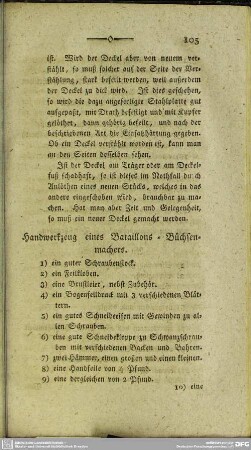 103
ist. Wird der Deckel aber von neuem ver-
stählt, so muß solcher auf der Seite der Ver-
stählung, stark befeilt werden, weil ausserdem
der Deckel zu dick wird. Ist dies geschehen,
so wird die dazu angefertigte Stahlplatte gut
aufgepaßt, mit Drath befestigt und mit Kupfer
gelöthet, dann gehörig befeilt, und nach der
beschriebenen Art die Einsatzhärtung gegeben.
Ob ein Deckel verstählt worden ist, kann man
an den Seiten desselben sehen.
Ist der Deckel am Träger oder am Deckel-
fuß schadhaft, so ist dieses im Nothfall durch
Anlöthen eines neuen Stücks, welches in das
andere eingeschoben wird, brauchbar zu ma-
chen. Hat man aber Zeit und Gelegenheit,
so muß ein neuer Deckel gemacht werden.
Handwerkzeug eines Bataillons-Büchsen-
machers.
1) ein guter Schraubenstock.
2) ein Feilkloben.
3) eine Brustleier, nebst Zubehör.
4) ein Bogenfeildruck mit 3 verschiedenen Blät-
tern.
5) ein gutes Schneideeisen mit Gewinden zu al-
len Schrauben.
6) eine gute Schneidekloppe zu Schwanzschrau-
ben mit verschiedenen Backen und Bohren.
7) zwei Hämmer, einen großen und einen kleinen.
8) eine Handfeile von 4 Pfund.
9) eine dergleichen von 2 Pfund.
10) eine